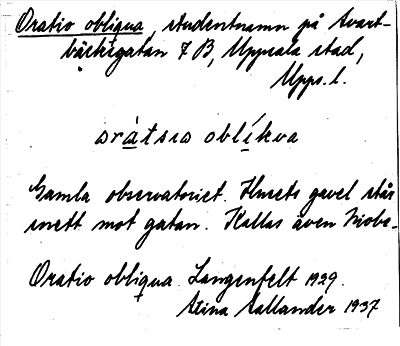 Oratio obliqua, studentnamn på Svart-
bäcksgatan 7 B, Uppsala stad,
Upps. l.
orátsıo oblíkva
Gamla observatoriet. Husets gavel står
snett mot gatan. Kallas även Niobe.
Oratio obliqua. Langenfelt 1929.
Stina Sallander 1937